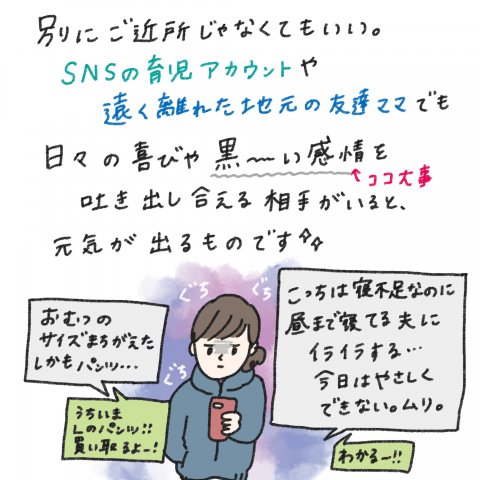 別にご近所じゃなくてもいい。
SNSの育児アカウントや
遠く離れた地元の友達ママでも
日々の喜びや黒〜い感情を
ココ大事
吐き出し合える相手がいると、
元気が出るものです
ぐち
ぐち
ぐち
おむつの
サイズまちがえた
しかもパンツ…
うちいま
Lのパンツ!!
買い取るよー!
こっちは寝不足なのに
昼まで寝てる夫に
イライラする…
今日はやさしく
できない。ムリ。
わかるー!!